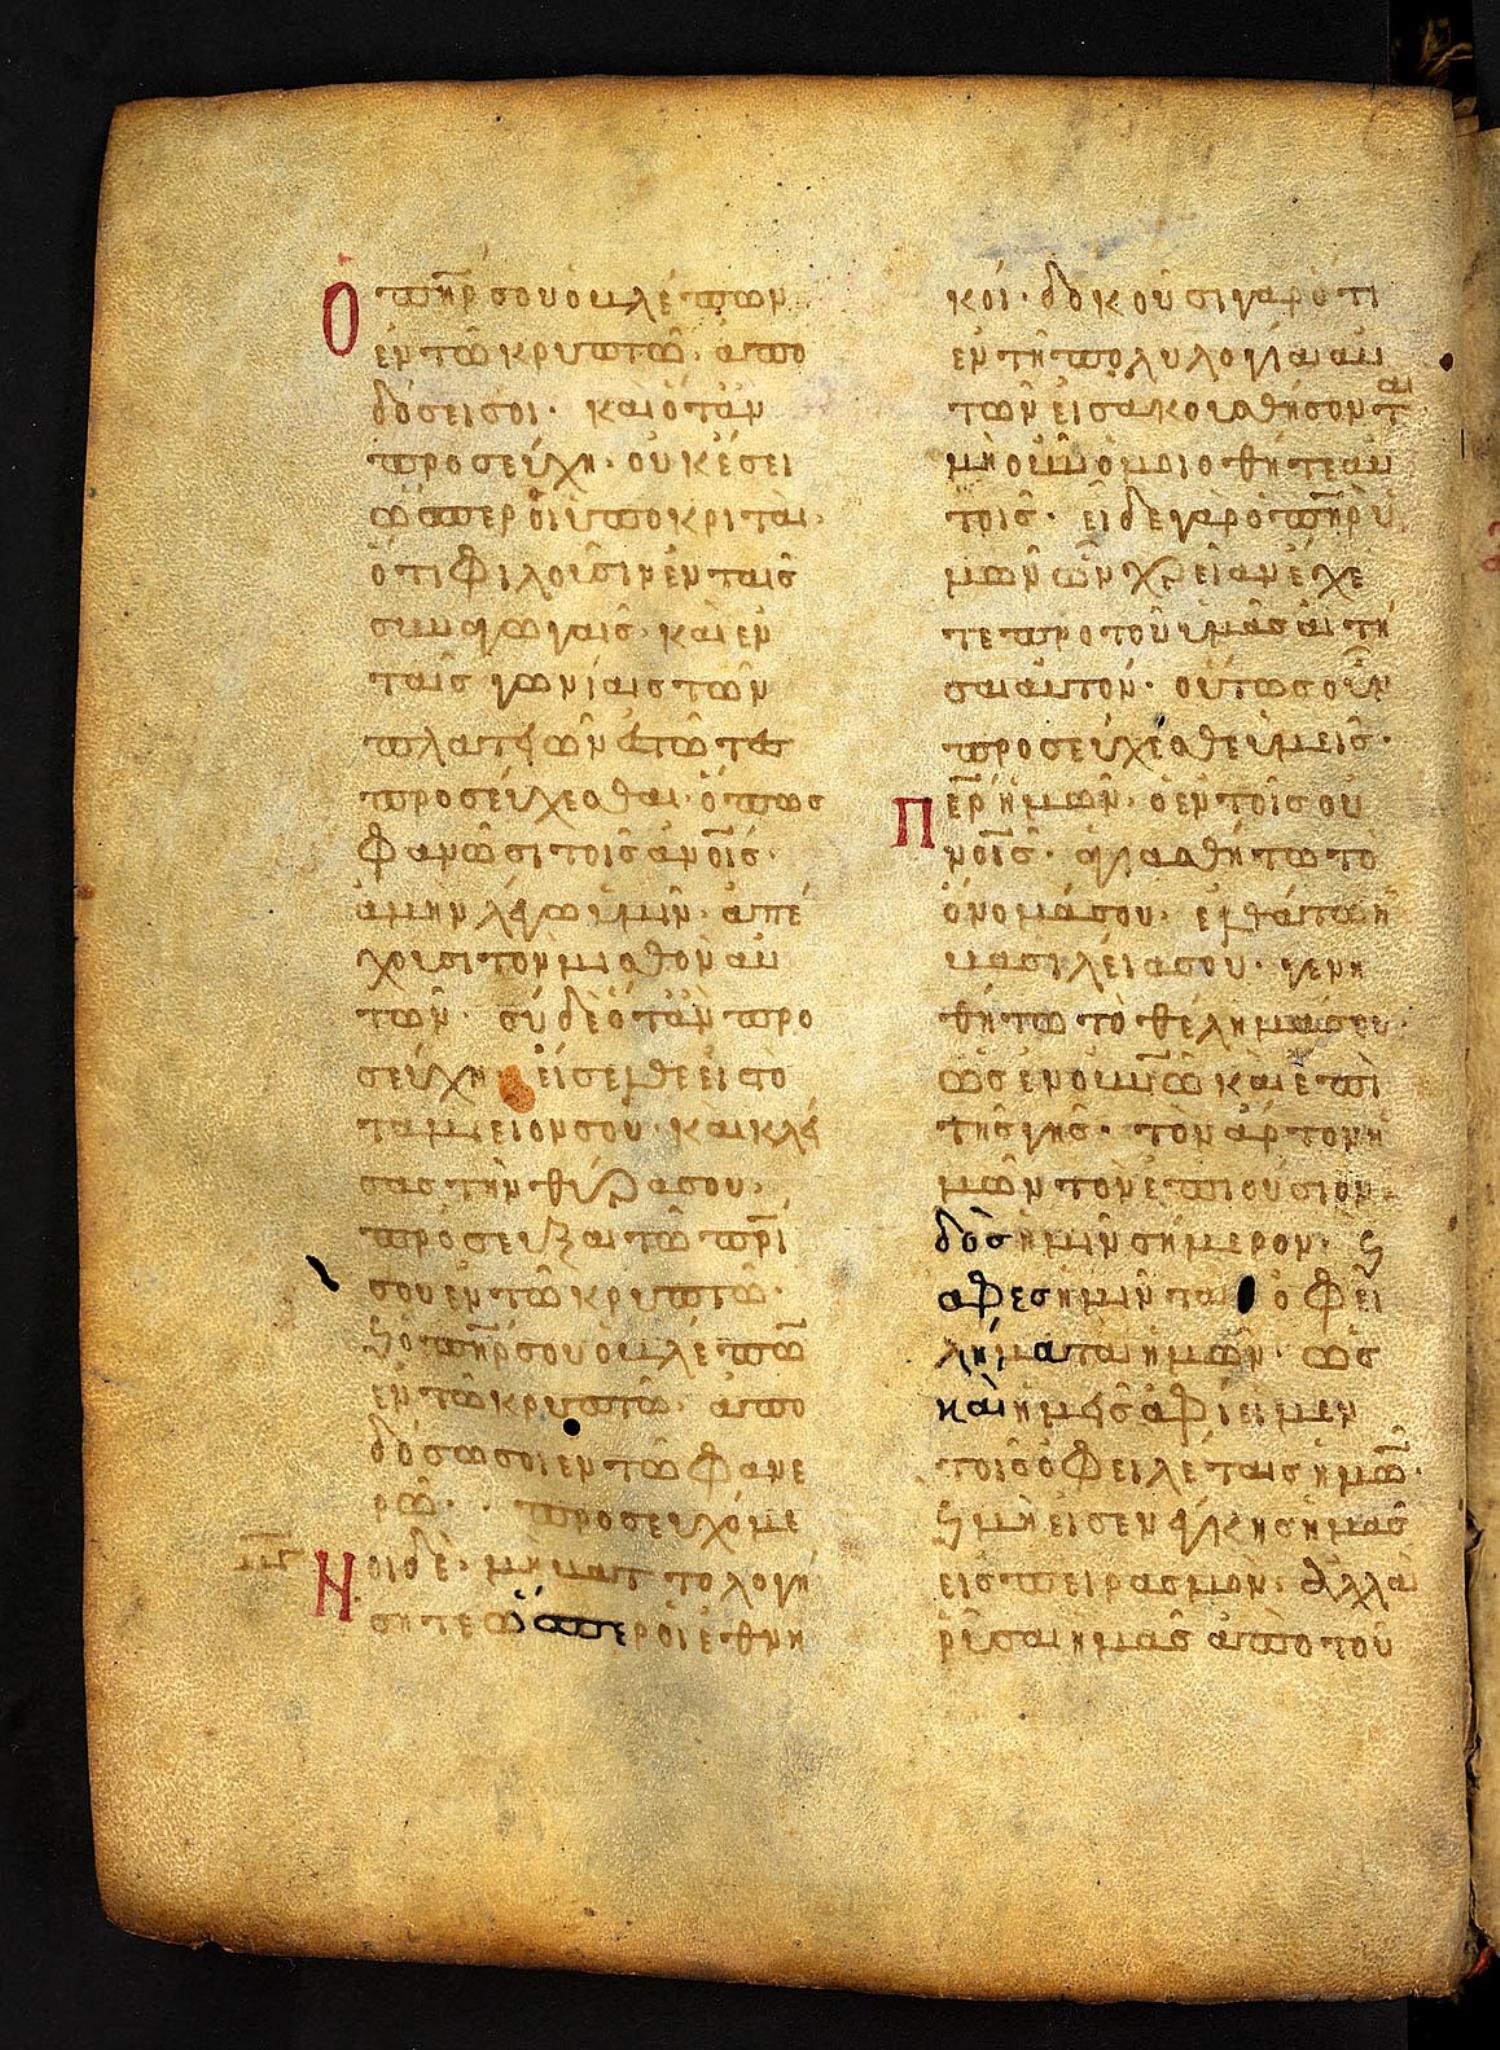 Ο πη̅ρ σου ὁ βλέπων
ἐν τῶ κρυπτῶ· ἀπο
δώσει σοι· καὶ ὅταν
προσεύχη· οὐκ ἔσει
ὥσπερ οἱ ὑποκριταί·
ὅτι φιλοῦσιν ἐν ταῖς
συναγωγαῖς· καὶ ἐν
ταῖς γωνίαις τῶν
πλατειῶν ἑστῶτες
προσεύχεσθαι· ὅπως
φανῶσι τοῖς ἀν̅οις·
ἀμὴν λέγω ὑμῖν· ἀπέ
χουσι τὸν μισθὸν αὐ
τῶν· σὺ δὲ ὅταν προ
σεύχη· εἴσελθε εἰς τὸ
ταμιεῖον σου· καὶ κλεί
σας τὴν θύρα σου·
πρόσευξαι τῶ πρ̅ι
σου ἐν τῶ κρυπτῶ·
ϛ ὁ πη̅ρ σου ὁ βλέπω̅
ἐν τῶ κρυπτῶ· ἀπο
δώσει σοι ἐν τῶ φανε
ρῶ· προσευχόμε
Νοι δὲ· μὴ βαττολογή
σητε ὥσπερ οἱ ἐθνη
κοί· δοκοῦσι γὰρ ὅτι
ἐν τῆ πολυλογία αὐ
τῶν εἰσακουσθήσονται
μὴ οὖν ὁμοιοθῆτε αὐ
τοῖς· εἶδε γὰρ ὁ πη̅ρ ὑ
μῶν ὧν χρείαν ἔχε
τε πρὸ τοῦ ὑμᾶς αἰτῆ
σαι αὐτόν· οὕτως οὖν
προσεύχεσθε ὑμεῖς·
Πε̅ρ ἡμῶν· ὁ ἐν τοῖς οὐ
νοῖ̅ς· ἁγιασθήτω τὸ
ὄνομά σου· ἐλθάτω ἡ
βασιλεία σου· γενη
θήτω τὸ θέλημά σου·
ὡς ἐν οὐνῶ̅ καὶ ἐπὶ
τῆς γῆς· τὸν ἄρτον ἡ
μῶν τὸν ἐπιούσιον·
δὸς ἡμῖν σήμερον· ϛ
αφες ἡμῖν τὰ ὀφει
λήματα ἡμῶν· ὡς
καὶ ἡμεῖς ἀφίεμεν
τοῖς ὀφειλέταις ἡμῶ̅·
ϛ μὴ εἰσενέγκης ἡμᾶς
εἰς πειρασμόν· ἀλλὰ
ῥῦσαι ἡμᾶς ἀπὸ τοῦ